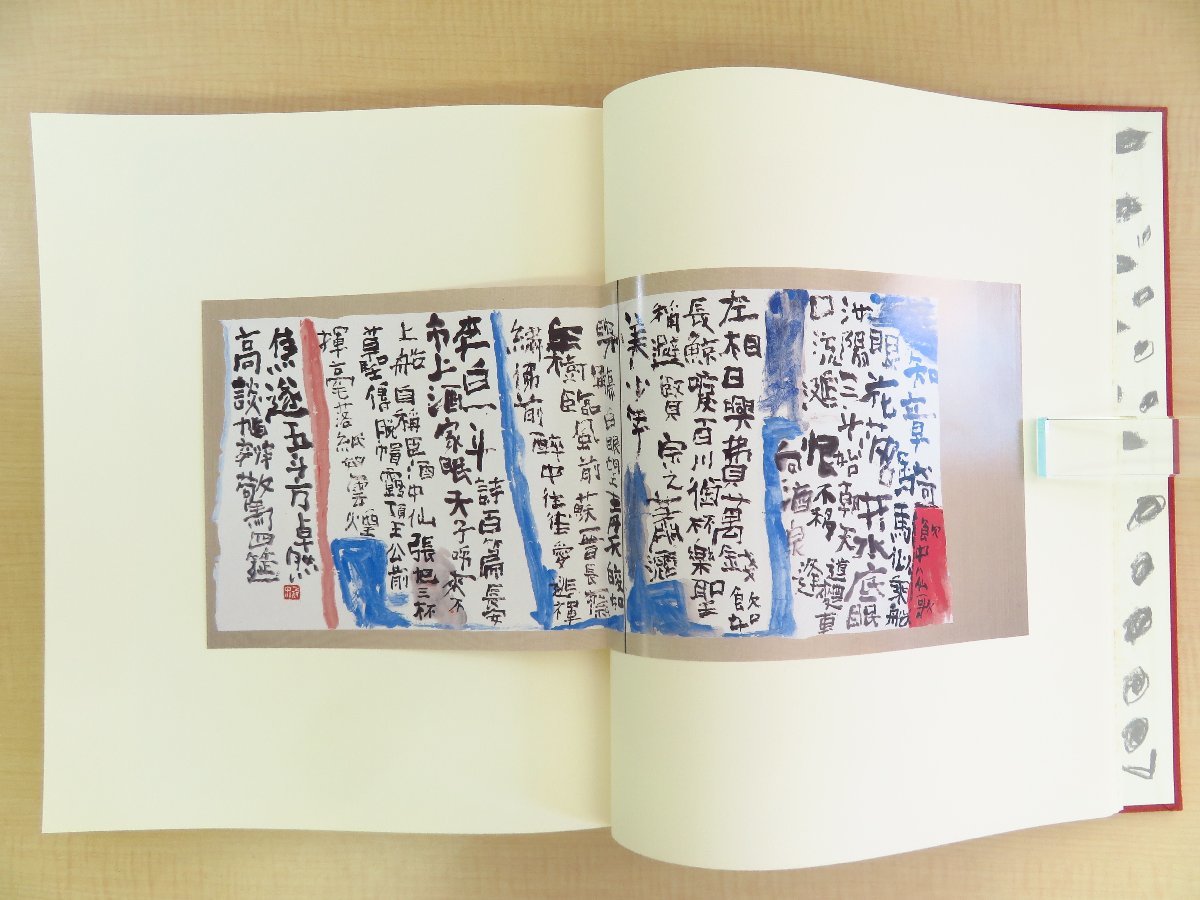 飲中八仙歌
知章騎馬似乘船
眼花落井水底眠
汝陽三斗始朝天道麴車
口流涎恨不移逢
向酒泉
左相日興費萬錢飲如
長鯨吸百川銜杯樂聖
稱避賢宗之蕭灑
美少年
舉觴白眼望青天皎如
玉樹臨風前蘇晉長齋
繡佛前醉中往往愛逃禪
李白一斗詩百篇長安
市上酒家眠天子呼來不
上船自稱臣酒中仙張旭三杯
草聖傳脫帽露頂王公前
揮毫落紙如雲煙
焦遂五斗方卓然
高談雄辯驚四筵